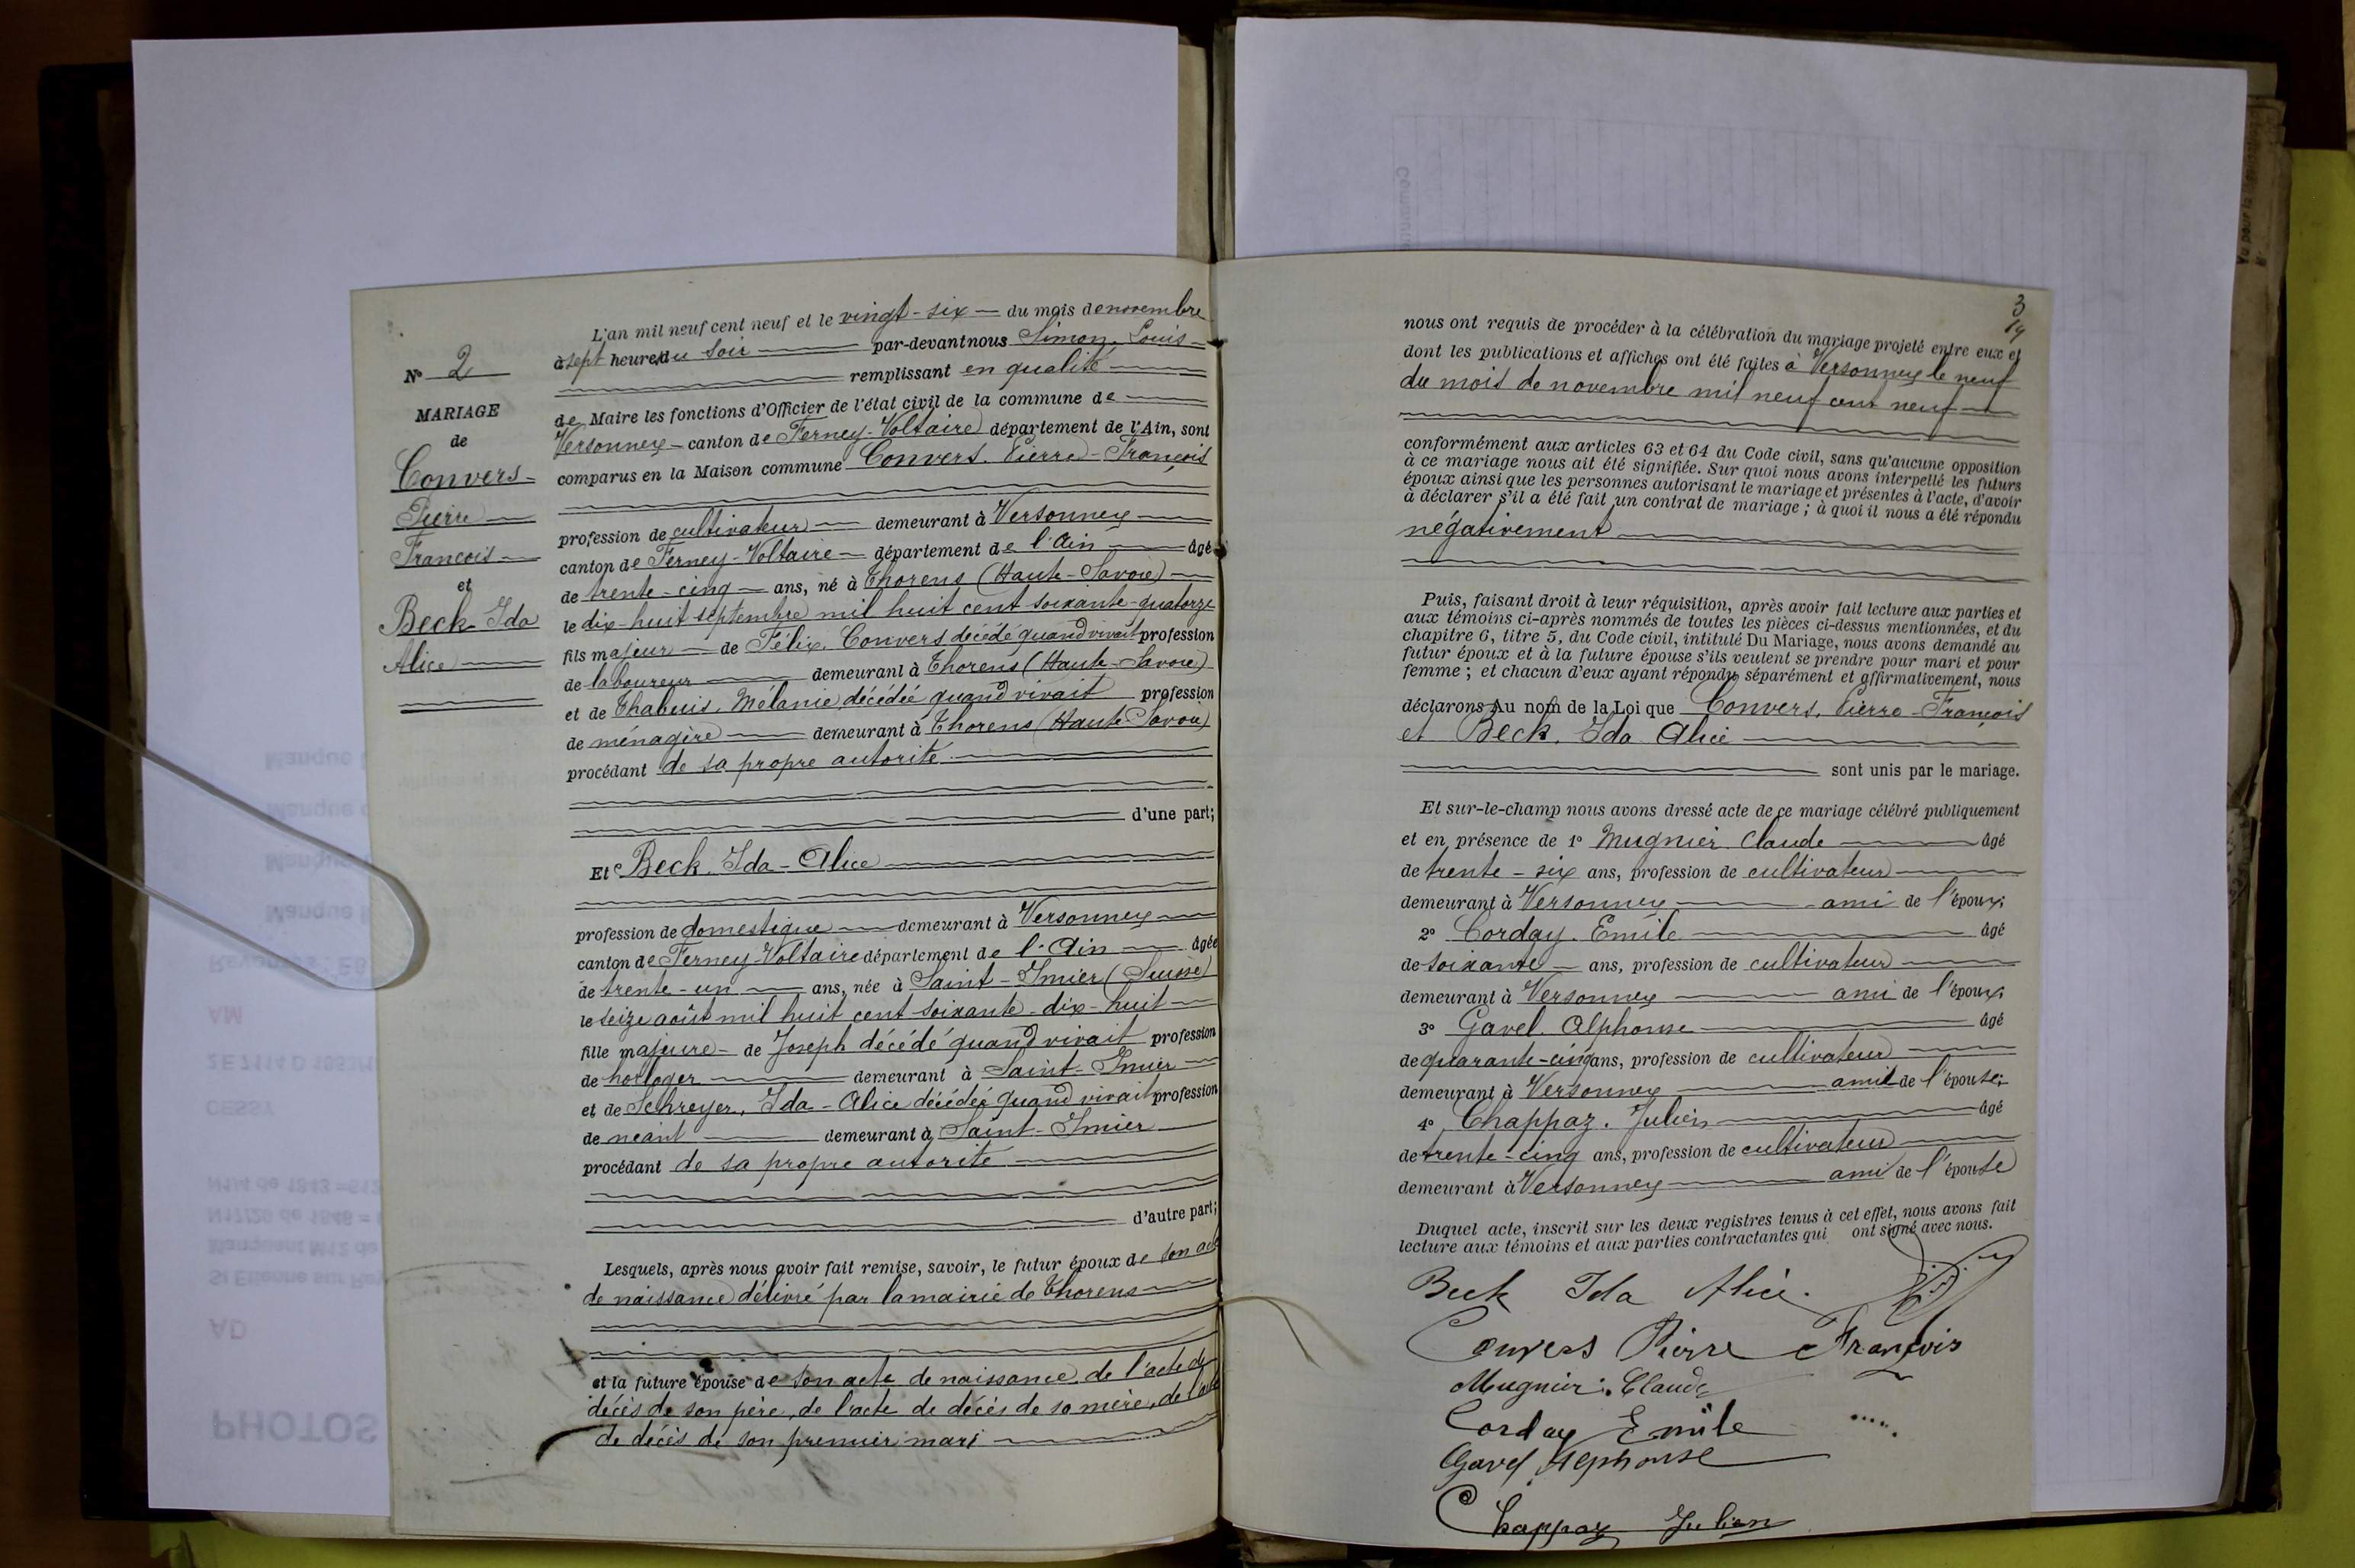 N° 2
MARIAGE
de
Convers
Pierre
François
et
Beck Ida
Alice
L'an mil neuf cent neuf et le vingt-six du mois de novembre
à sept heures du soir par-devant nous Simon. Louis
remplissant en qualité
de Maire les fonctions d'Officier de l'état civil de la commune de
Versonnex canton de Ferney-Voltaire département de l'Ain, sont
comparus en la Maison commune Convers. Pierre-François
profession de cultivateur demeurant à Versonnex
canton de Ferney-Voltaire département de l'Ain âgé
de trente-cinq ans, né à Thorens (Haute-Savoie)
le dix-huit septembre mil huit cent soixante-quatorze
fils majeur de Félix. Convers décédé quand vivait profession
de laboureur demeurant à Thorens (Haute-Savoie)
et de Chabuis. Mélanie décédée quand vivait profession
de ménagère demeurant à Thorens (Haute-Savoie)
procédant de sa propre autorité
d'une part;
Et Beck. Ida-Alice
profession de domestique demeurant à Versonnex
canton de Ferney-Voltaire département de l'Ain âgée
de trente-un ans, née à Saint-Imier (Suisse)
le seize août mil huit cent soixante-dix-huit
fille majeure de Joseph décédé quand vivait profession
de horloger demeurant à Saint-Imier
et de Schreyer, Ida-Alice décédée quand vivait profession
de néant demeurant à Saint-Imier
procédant de sa propre autorité
d'autre part;
Lesquels, après nous avoir fait remise, savoir, le futur époux de son acte
de naissance délivré par la mairie de Thorens
et la future épouse de son acte de naissance, de l'acte de
décès de son père, de l'acte de décès de sa mère, de l'acte
de décès de son premier mari
3
nous ont requis de procéder à la célébration du mariage projeté entre eux et
dont les publications et affiches ont été faites à Versonnex le neuf
du mois de novembre mil neuf cent neuf
conformément aux articles 63 et 64 du Code civil, sans qu'aucune opposition
à ce mariage nous ait été signifiée. Sur quoi nous avons interpellé les futurs
époux ainsi que les personnes autorisant le mariage et présentes à l'acte, d'avoir
à déclarer s'il a été fait un contrat de mariage; à quoi il nous a été répondu
négativement
Puis, faisant droit à leur réquisition, après avoir fait lecture aux parties et
aux témoins ci-après nommés de toutes les pièces ci-dessus mentionnées, et du
chapitre 6, titre 5, du Code civil, intitulé Du Mariage, nous avons demandé au
futur époux et à la future épouse s'ils veulent se prendre pour mari et pour
femme; et chacun d'eux ayant répondu séparément et affirmativement, nous
déclarons Au nom de la Loi que Convers. Pierre-François
et Beck. Ida Alice
sont unis par le mariage.
Et sur-le-champ nous avons dressé acte de ce mariage célébré publiquement
et en présence de 1° Mugnier. Claude âgé
de trente-six ans, profession de cultivateur
demeurant à Versonnex ami de l'époux;
2° Corday. Emile âgé
de soixante ans, profession de cultivateur
demeurant à Versonnex ami de l'époux;
3° Gavel. Alphonse âgé
de quarante-cinq ans, profession de cultivateur
demeurant à Versonnex ami de l'épouse;
4° Chappaz. Julien âgé
de trente-cinq ans, profession de cultivateur
demeurant à Versonnex ami de l'épouse
Duquel acte, inscrit sur les deux registres tenus à cet effet, nous avons fait
lecture aux témoins et aux parties contractantes qui ont signé avec nous.
Beck Ida Alice.
Convers Pierre François
Mugnier Claude
Corday Emile
Gavel Alphonse
Chappaz Julien